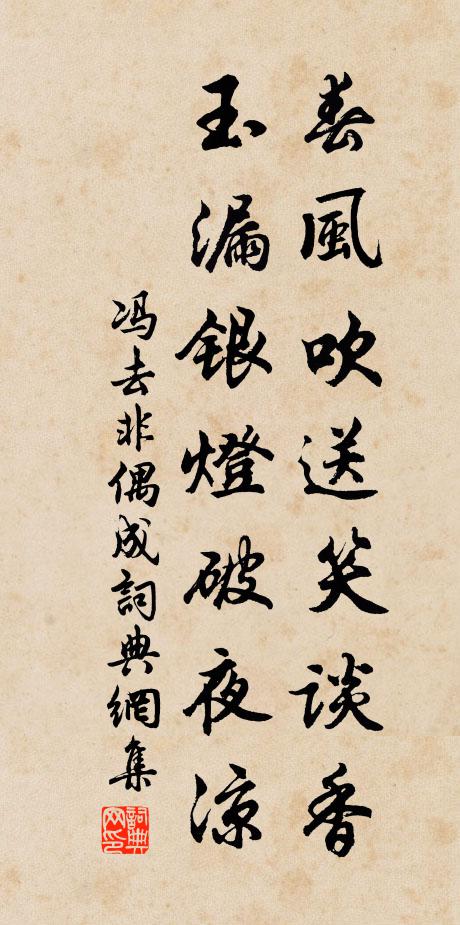 春風吹送笑談香
玉漏銀燈破夜涼
冯去非偶成詞典網集
詞典
网印